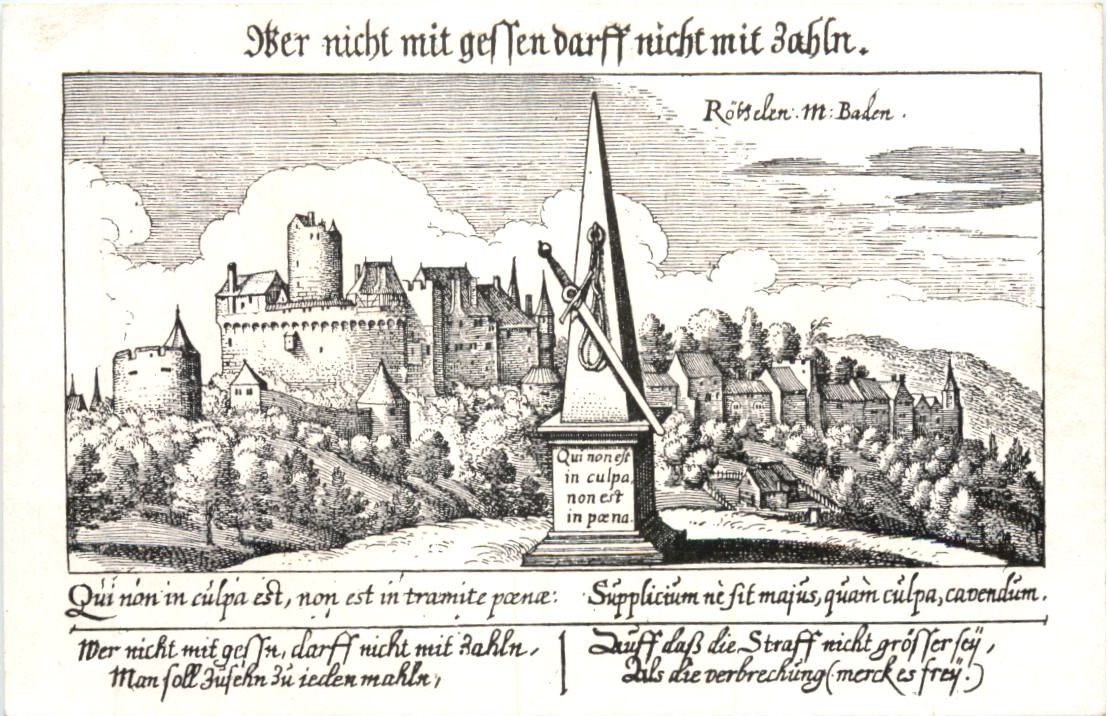 Wer nicht mit gessen darff nicht mit Zahln.
Röttelen. M: Baden.
Qui non est
in culpa,
non est
in pœna.
Qui non in culpa est, non est in tramite pœnæ: Supplicium nè sit majus, quàm culpa, cavendum.
Wer nicht mit gessn, darff nicht mit Zahln,
Man soll Zusehn Zu ieden mahln,
Auff daß die Straff nicht grösser seÿ,
Als die verbrechung (merck es freÿ.)